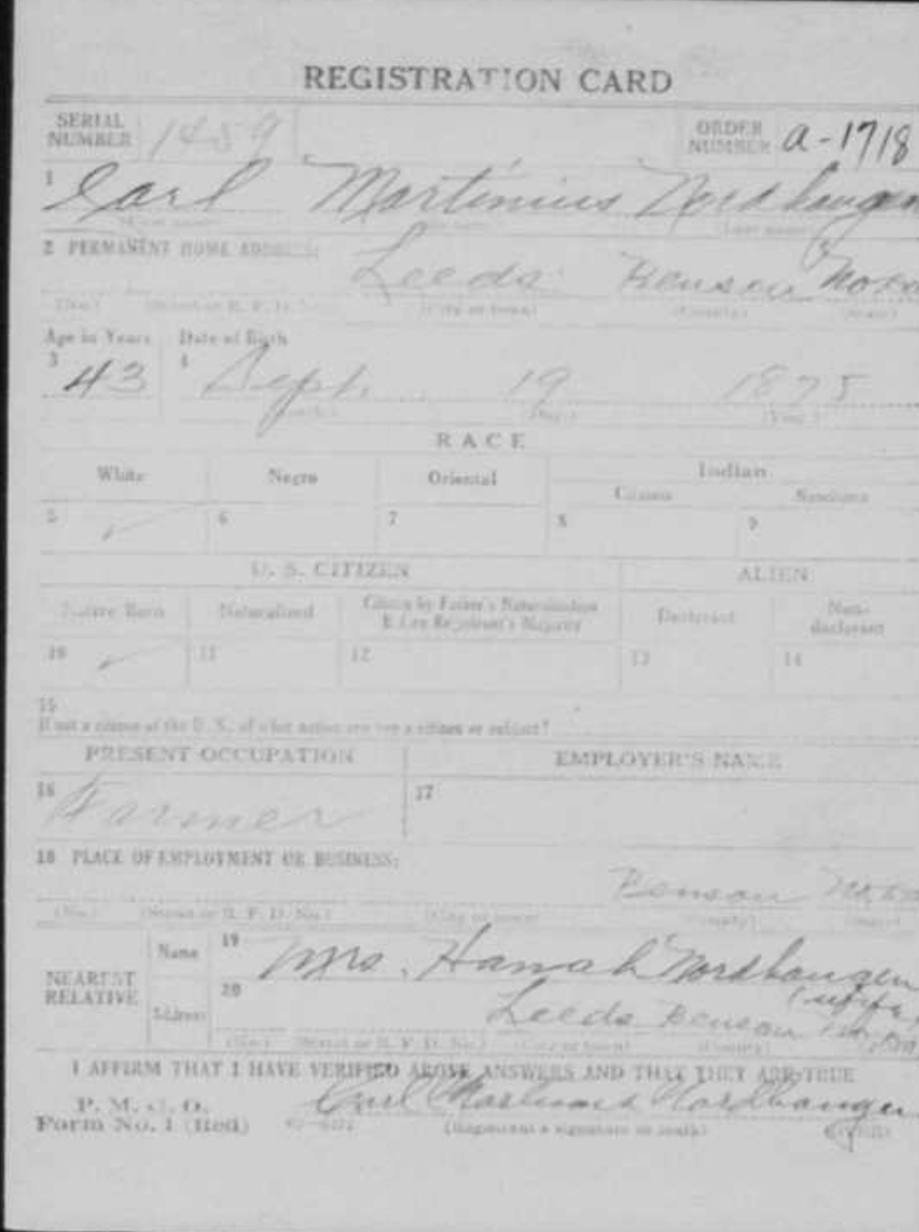 REGISTRATION CARD
SERIAL NUMBER 1459 ORDER NUMBER a-1718
1 Carl Martinius Nordhaugen
2 PERMANENT HOME ADDRESS: Leeds Benson
(No.) (Street or R. F. D. No.) (City or town) (County) (State)
Age in Years Date of Birth
3 43 4 Sept. 19 1875
(Month) (Day) (Year)
RACE
White Negro Oriental Indian
Citizen Noncitizen
5 ✓ 6 7 8 9
U. S. CITIZEN ALIEN
Native Born Naturalized Citizen by Father's Naturalization Before Registrant's Majority Declarant Non-declarant
10 ✓ 11 12 13 14
15
If not a citizen of the U. S., of what nation are you a citizen or subject?
PRESENT OCCUPATION EMPLOYER'S NAME
16 Farmer 17
18 PLACE OF EMPLOYMENT OR BUSINESS:
Benson
(No.) (Street or R. F. D. No.) (City or town) (County) (State)
NEAREST RELATIVE
Name 19 Mrs. Hannah Nordhaugen
(wife)
Address 20 Leeds Benson
(No.) (Street or R. F. D. No.) (City or town) (County) (State)
I AFFIRM THAT I HAVE VERIFIED ABOVE ANSWERS AND THAT THEY ARE TRUE
P. M. G. O.
Form No. 1 (Red) Carl Martinius Nordhaugen
(Registrant's signature or mark) (OVER)